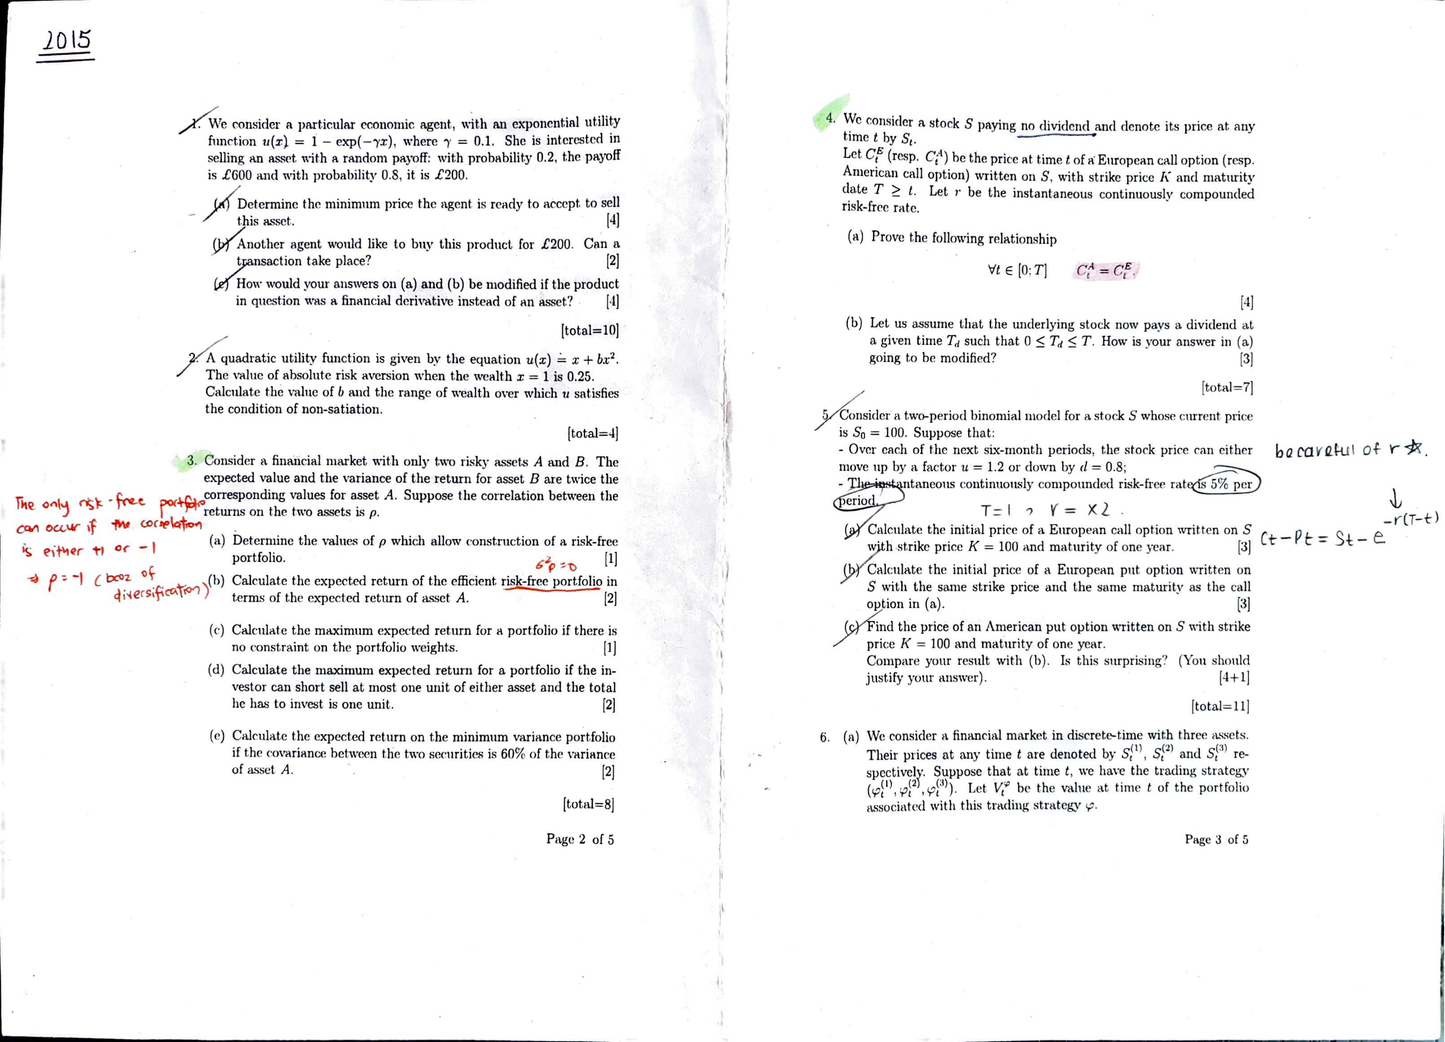 2015
1. We consider a particular economic agent, with an exponential utility
function u(x) = 1 − exp(−γx), where γ = 0.1. She is interested in
selling an asset with a random payoff: with probability 0.2, the payoff
is £600 and with probability 0.8, it is £200.
(a) Determine the minimum price the agent is ready to accept to sell
this asset. [4]
(b) Another agent would like to buy this product for £200. Can a
transaction take place? [2]
(c) How would your answers on (a) and (b) be modified if the product
in question was a financial derivative instead of an asset? [4]
[total=10]
2. A quadratic utility function is given by the equation u(x) = x + bx².
The value of absolute risk aversion when the wealth x = 1 is 0.25.
Calculate the value of b and the range of wealth over which u satisfies
the condition of non-satiation.
[total=4]
3. Consider a financial market with only two risky assets A and B. The
expected value and the variance of the return for asset B are twice the
corresponding values for asset A. Suppose the correlation between the
returns on the two assets is ρ.
The only risk-free portfolio
can occur if the correlation
is either +1 or -1
⇒ ρ = -1 (bcoz of
diversification)
(a) Determine the values of ρ which allow construction of a risk-free
portfolio. [1]
σ²p = 0
(b) Calculate the expected return of the efficient risk-free portfolio in
terms of the expected return of asset A. [2]
(c) Calculate the maximum expected return for a portfolio if there is
no constraint on the portfolio weights. [1]
(d) Calculate the maximum expected return for a portfolio if the in-
vestor can short sell at most one unit of either asset and the total
he has to invest is one unit. [2]
(e) Calculate the expected return on the minimum variance portfolio
if the covariance between the two securities is 60% of the variance
of asset A. [2]
[total=8]
Page 2 of 5
4. We consider a stock S paying no dividend and denote its price at any
time t by Sₜ.
Let Cₜᴱ (resp. Cₜᴬ) be the price at time t of a European call option (resp.
American call option) written on S, with strike price K and maturity
date T ≥ t. Let r be the instantaneous continuously compounded
risk-free rate.
(a) Prove the following relationship
∀t ∈ [0; T] Cₜᴬ = Cₜᴱ.
[4]
(b) Let us assume that the underlying stock now pays a dividend at
a given time T_d such that 0 ≤ T_d ≤ T. How is your answer in (a)
going to be modified? [3]
[total=7]
5. Consider a two-period binomial model for a stock S whose current price
is S₀ = 100. Suppose that:
- Over each of the next six-month periods, the stock price can either
move up by a factor u = 1.2 or down by d = 0.8;
- The instantaneous continuously compounded risk-free rate is 5% per
period.
be careful of r ☆.
T=1, r = ×2.
(a) Calculate the initial price of a European call option written on S
with strike price K = 100 and maturity of one year. [3]
↓
Ct − Pt = St − e^{−r(T−t)}
(b) Calculate the initial price of a European put option written on
S with the same strike price and the same maturity as the call
option in (a). [3]
(c) Find the price of an American put option written on S with strike
price K = 100 and maturity of one year.
Compare your result with (b). Is this surprising? (You should
justify your answer). [4+1]
[total=11]
6. (a) We consider a financial market in discrete-time with three assets.
Their prices at any time t are denoted by Sₜ⁽¹⁾, Sₜ⁽²⁾ and Sₜ⁽³⁾ re-
spectively. Suppose that at time t, we have the trading strategy
(φₜ⁽¹⁾, φₜ⁽²⁾, φₜ⁽³⁾). Let Vₜᵠ be the value at time t of the portfolio
associated with this trading strategy φ.
Page 3 of 5